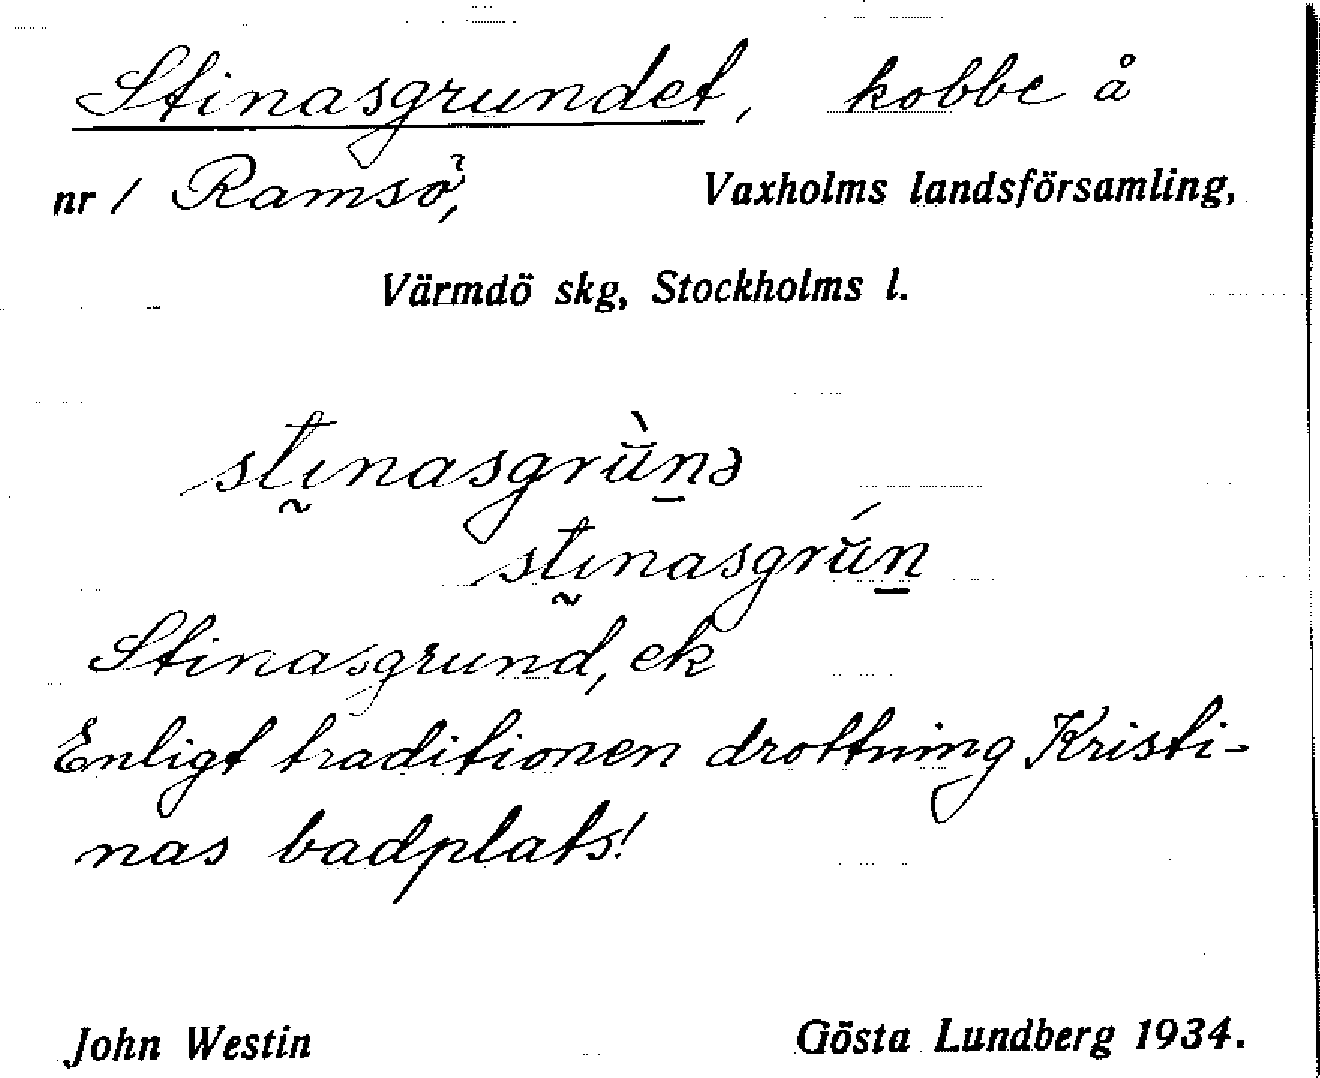 Stinasgrundet, kobbe å
nr 1 Ramsö, Vaxholms landsförsamling,
Värmdö skg, Stockholms l.
stı̰nasgrŭ̀n̠ə
stı̰nasgrŭ́n̠
Stinasgrund, ek
Enligt traditionen drottning Kristi-
nas badplats!
John Westin Gösta Lundberg 1934.